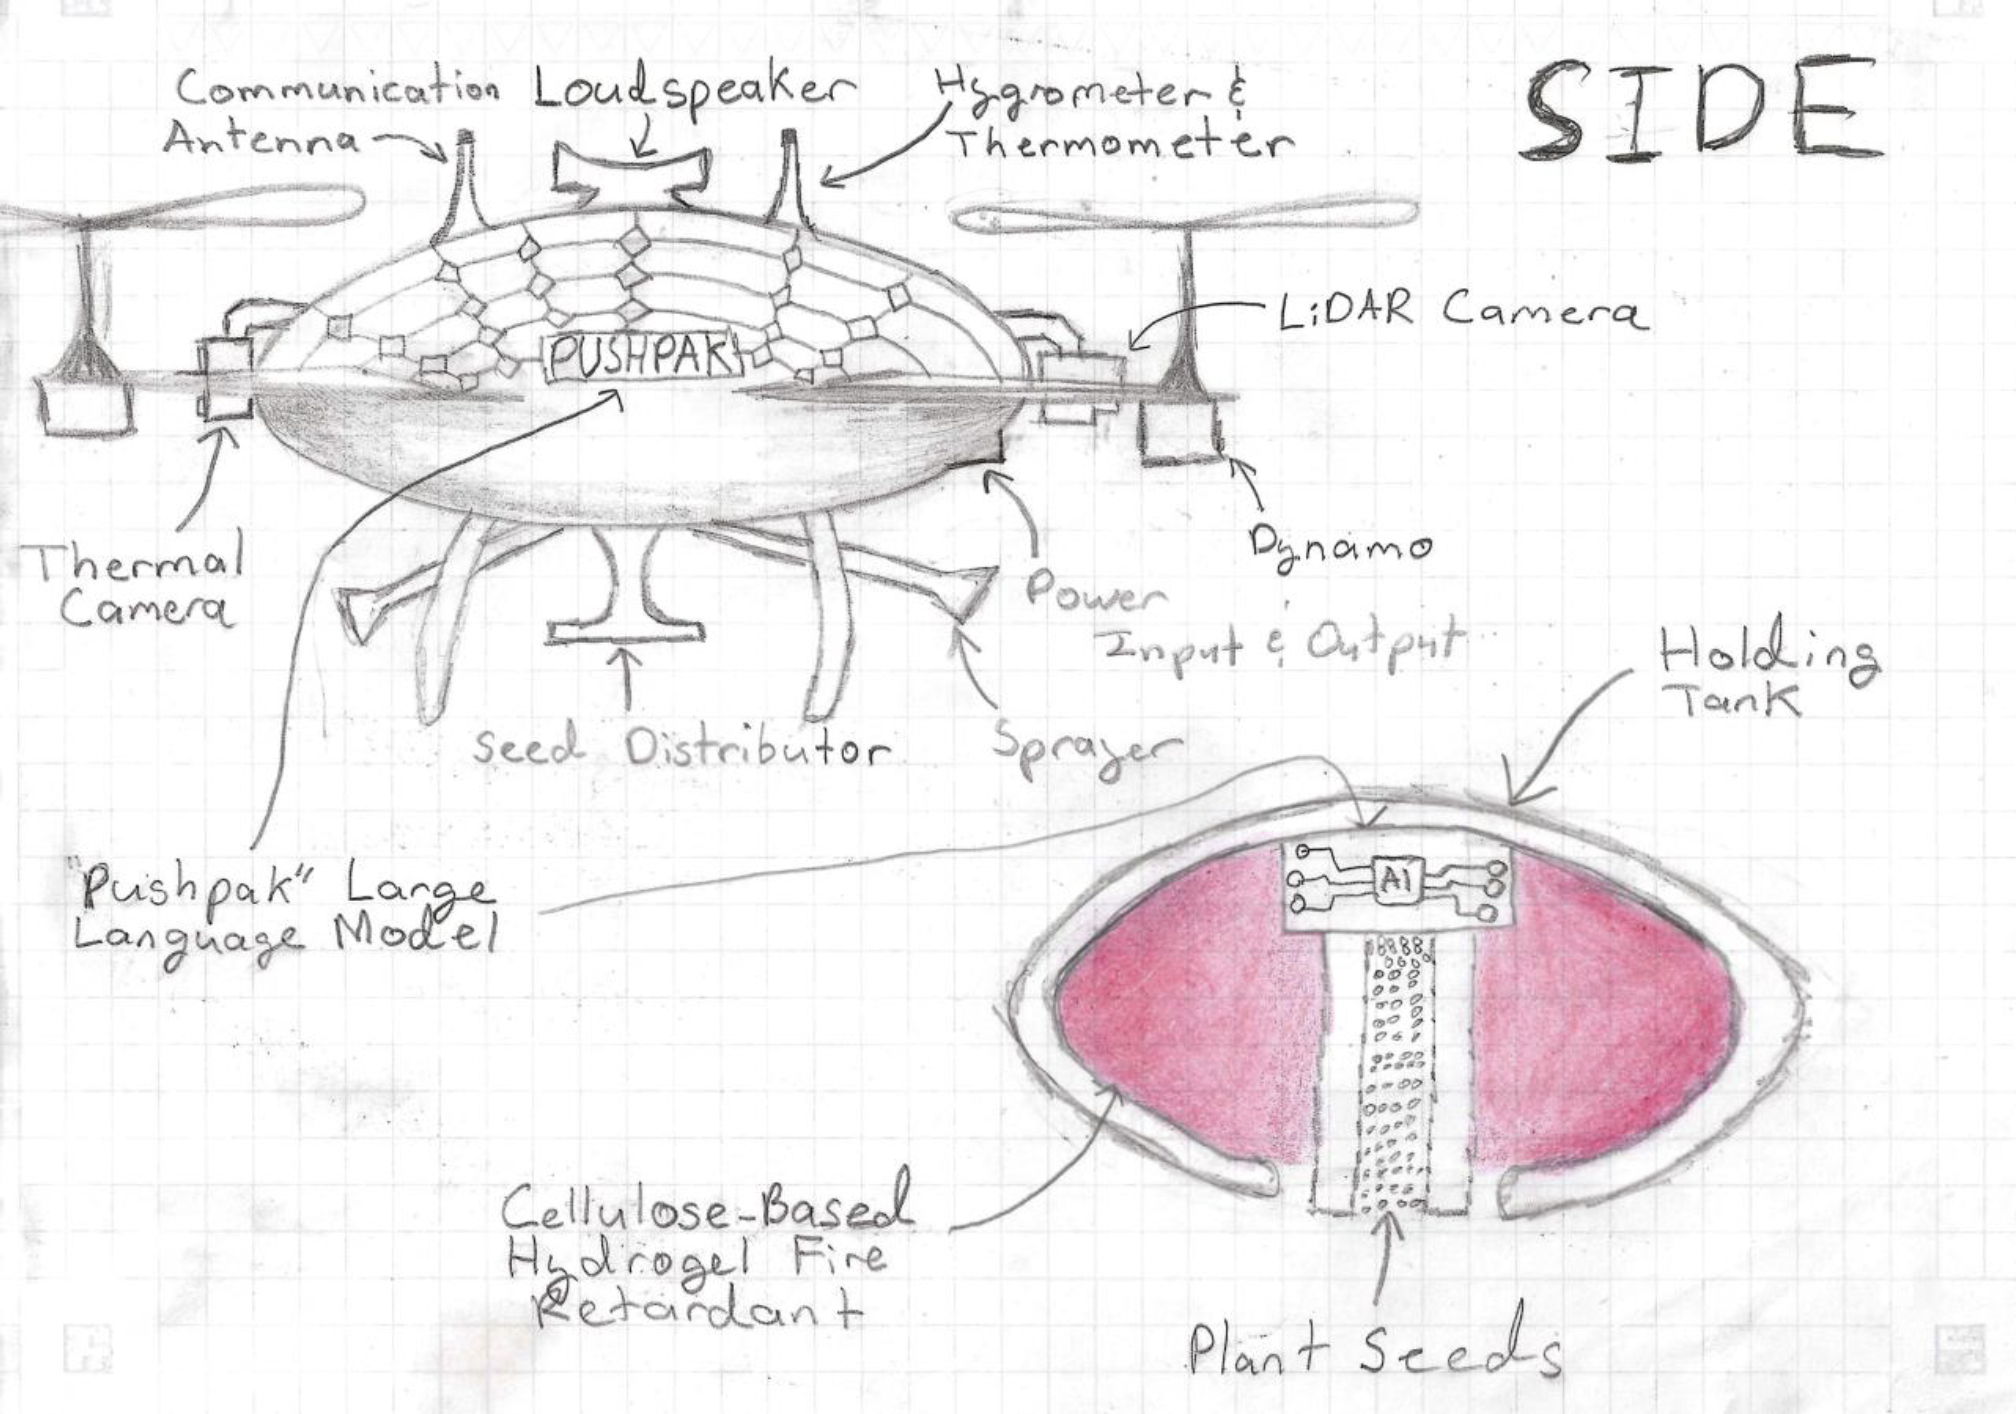 SIDE
Communication
Antenna
Loudspeaker
Hygrometer &
Thermometer
LiDAR Camera
PUSHPAK
Thermal
Camera
Dynamo
Power
Input & Output
Seed Distributor
Sprayer
Holding
Tank
"Pushpak" Large
Language Model
AI
Cellulose-Based
Hydrogel Fire
Retardant
Plant Seeds